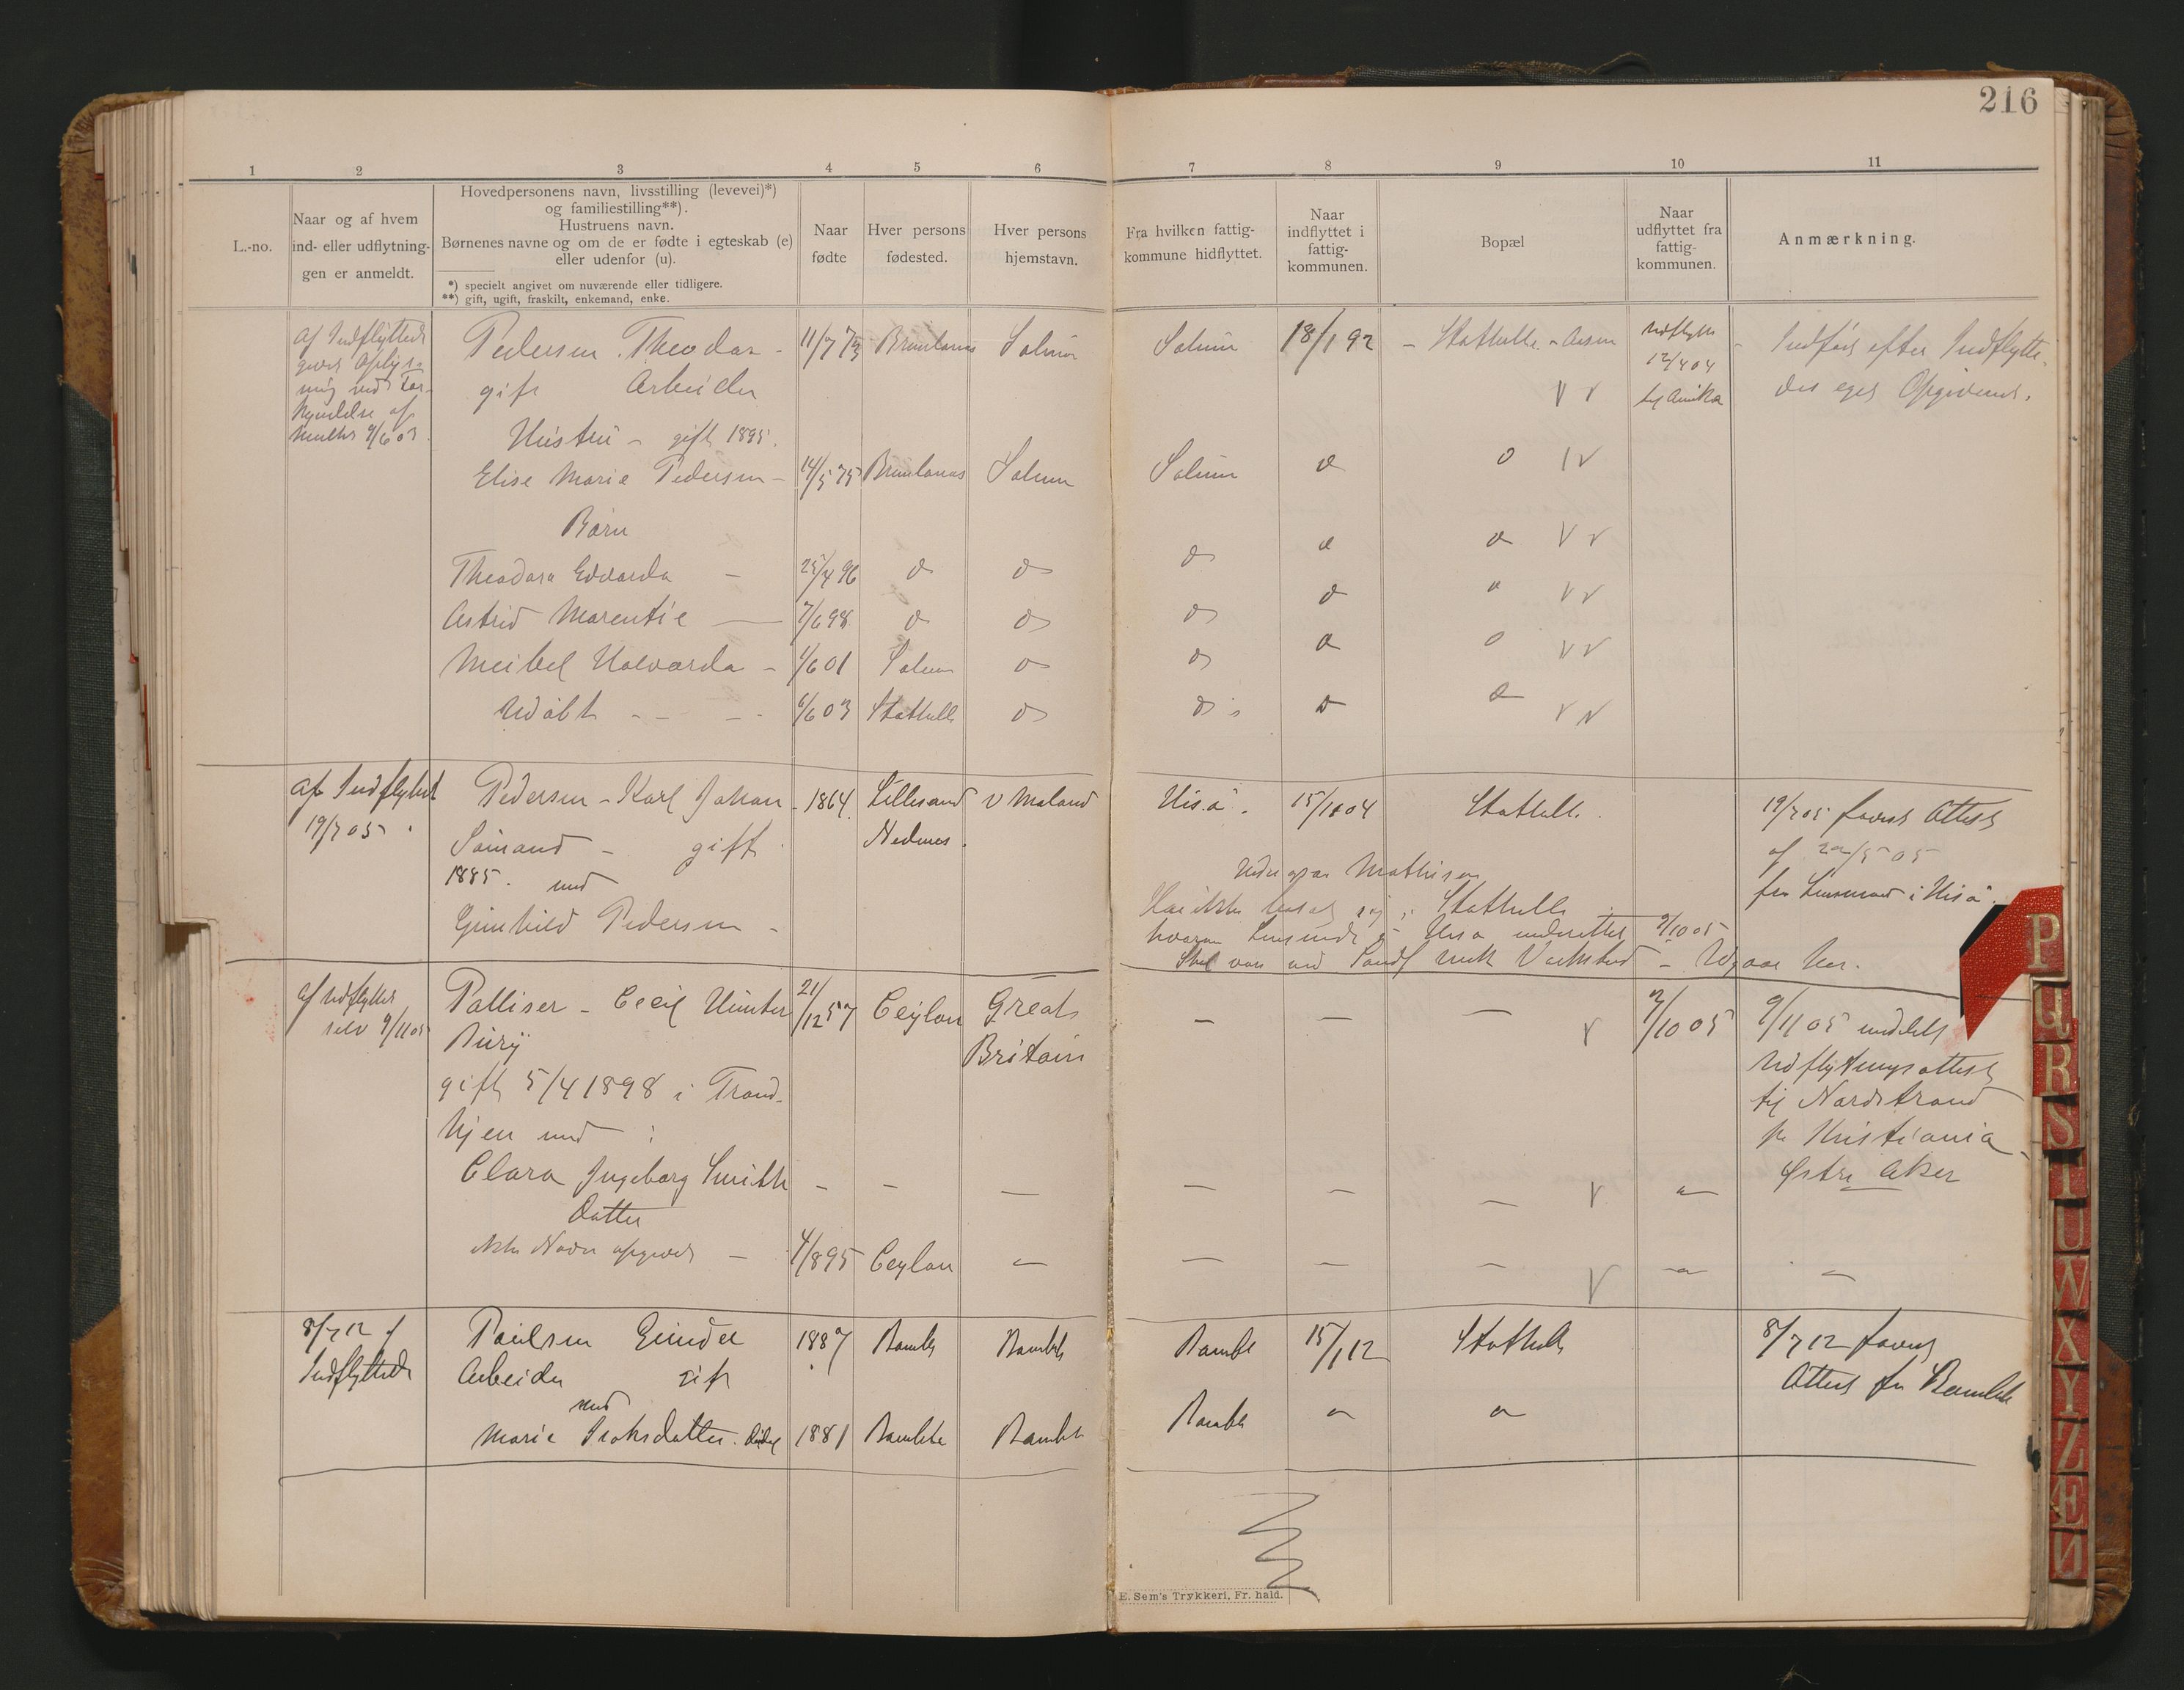 216
1 2 3 4 5 6 7 8 9 10 11
L.-no.
Naar og af hvem
ind- eller udflytnin-
gen er anmeldt.
Hovedpersonens navn, livsstilling (levevei)*)
og familiestilling**).
Hustruens navn.
Børnenes navne og om de er fødte i egteskab (e)
eller udenfor (u).
*) specielt angivet om nuværende eller tidligere.
**) gift, ugift, fraskilt, enkemand, enke.
Naar
fødte
Hver persons
fødested.
Hver persons
hjemstavn.
Fra hvilken fattig-
kommune hidflyttet.
Naar
indflyttet i
fattig-
kommunen.
Bopæl
Naar
udflyttet fra
fattig-
kommunen.
Anmærkning.
af Indflyttede
Pedersen Theodor - 11/7 73 Brunlanes Solum Solum 18/1 92 - Stathelle
Udflyttet
12/4 04
Indført efter Indflytte-
des eget Opgivende.
gift Arbeider
Hustru - gift 1895.
Elise Marie Pedersen - 14/5 75 Brunlanes Solum Solum
Børn
Theodora Edvarda - 25/4 96
Astrid Marentie - 7/6 98
Meibel Halvarda - 1/6 01 Solum
Udøbt - - 6/6 03 Stathelle
af Indflyttet
19/7 05
Pedersen - Karl Johan - 1864. Lillesand V Moland Hisø. 15/10 04 Stathelle.
Nednes.
19/7 05 fævist Attest
af 22/5 05
fra Lensmand i Hisø.
Sømand - gift
1885. med
Gunhild Pedersen -
Mathisen
Har ikke bosat sig i Stathelle
hvorom Lensmd i Hisø underrettet 9/10 05
Værksted - Udgaar her.
af Udflyttet
selv 9/11 05
Palliser - Cecil Hunter 21/12 57 Ceylon Great
Britain
7/10 05
9/11 05 meddelt
Udflytningsattest
til Nordstrand
pr Kristiania
Østre Aker
gift 5/4 1898 i Trond-
hjem med :
Clara Ingeborg Smith - - -
Datter
ikke Navn opgivet - 4/8 95 Ceylon -
8/7 12 af
Indflyttede
Paulsen Gunder 1887 Bamble Bamble Bamble 15/1 12 Stathelle
8/7 12 fævist
Attest fra Bamble
Arbeider gift
med
Marie Isaksdatter. 1881 Bamble Bamble Bamble
E. Sem's Trykkeri, Fr. hald.
P
Q
R
S
T
U
W
X
Y
Z
Æ